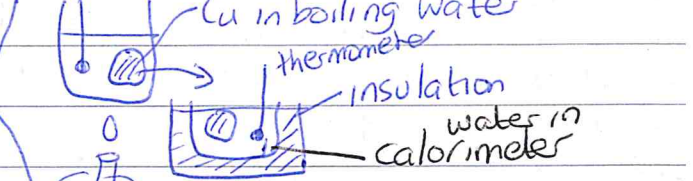 Cu in boiling water
thermometer
insulation
water in
calorimeter